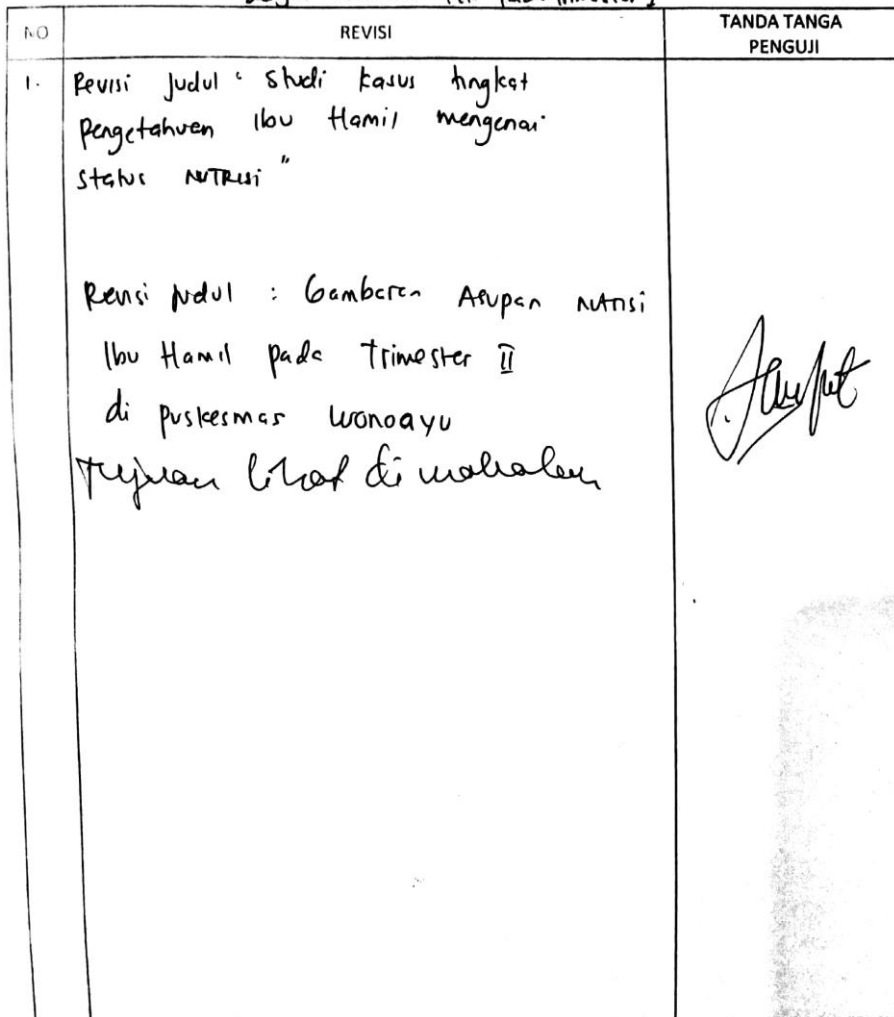 Trimester I
NO
REVISI
TANDA TANGA
PENGUJI
1.
Revisi Judul " Studi kasus tingkat
Pengetahuan Ibu Hamil mengenai
Status NUTRISI "
Revisi Judul : Gambaran Asupan Nutrisi
Ibu Hamil pada Trimester II
di Puskesmas Wonoayu
Tujuan lihat di